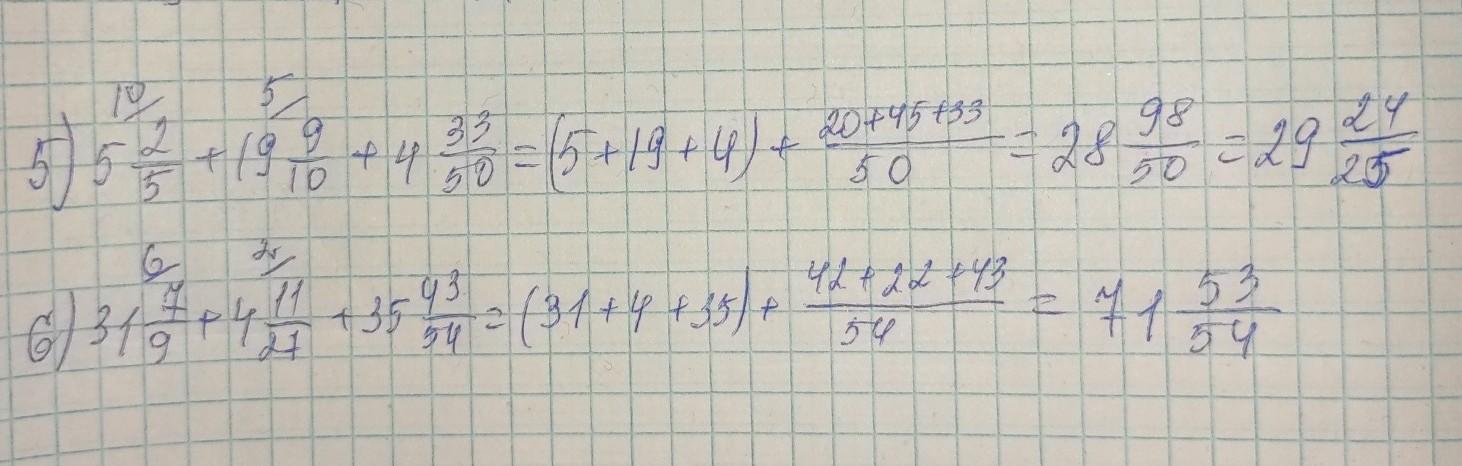 5) 5 2/5 + 19 9/10 + 4 33/50 = (5+19+4) + (20+45+33)/50 = 28 98/50 = 29 24/25
6) 31 7/9 + 4 11/27 + 35 43/54 = (31+4+35) + (42+22+43)/54 = 71 53/54